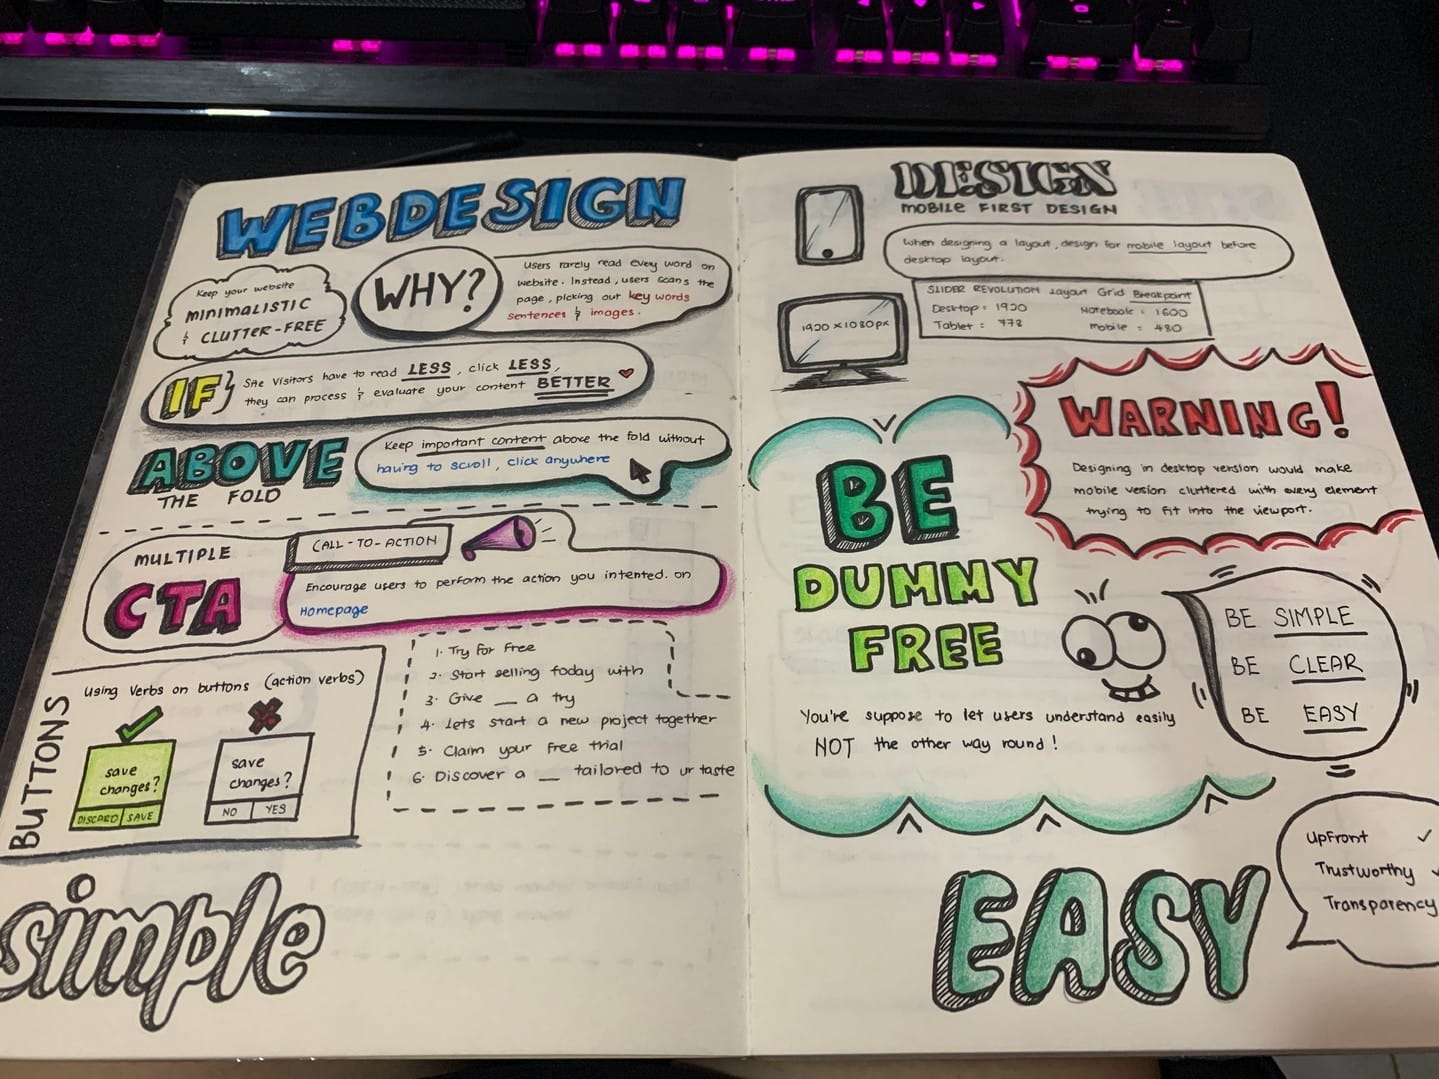 WEBDESIGN
Keep your website
MINIMALISTIC
& CLUTTER-FREE
WHY?
Users rarely read every word on
website. Instead, users scans the
page, picking out key words
sentences & images.
IF
Site Visitors have to read LESS, click LESS,
they can process & evaluate your content BETTER
ABOVE
THE FOLD
Keep important content above the fold without
having to scroll, click anywhere
MULTIPLE
CTA
CALL-TO-ACTION
Encourage users to perform the action you intented. on
Homepage
BUTTONS
Using Verbs on buttons (action verbs)
save
changes?
DISCARD SAVE
save
changes?
NO YES
1. Try for Free
2. Start selling today with
3. Give __ a try
4. Lets start a new project together
5. Claim your Free trial
6. Discover a __ tailored to ur taste
simple
DESIGN
MOBILE FIRST DESIGN
When designing a layout, design for mobile layout before
desktop layout.
1920 x 1080px
SLIDER REVOLUTION Layout Grid Breakpoint
Desktop : 1920 Notebook : 1600
Tablet : 778 Mobile : 480
WARNING!
Designing in desktop version would make
mobile version cluttered with every element
trying to fit into the viewport.
BE
DUMMY
FREE
BE SIMPLE
BE CLEAR
BE EASY
You're suppose to let users understand easily
NOT the other way round!
EASY
Upfront ✓
Trustworthy ✓
Transparency